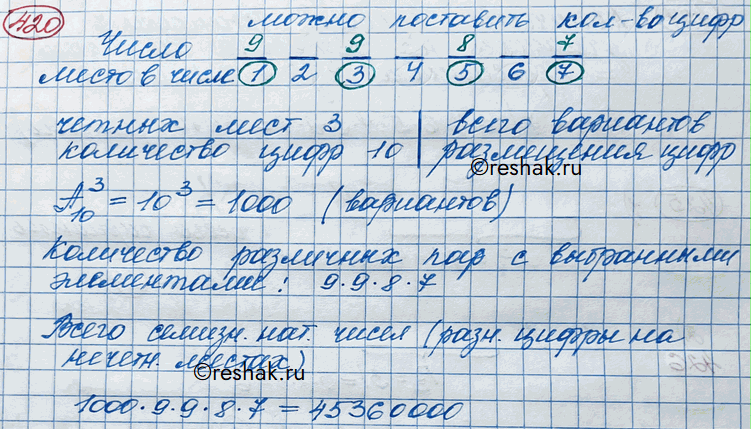 420 можно поставить кол-во цифр
Число 9 9 8 7
место в числе 1 2 3 4 5 6 7
четных мест 3 | всего вариантов
количество цифр 10 | размещения цифр
©reshak.ru
A̅₁₀³ = 10³ = 1000 (вариантов)
Количество различных пар с выбранными
элементами: 9·9·8·7
Всего семизн. нат. чисел (разн. цифры на
нечетн. местах)
©reshak.ru
1000·9·9·8·7 = 45360000